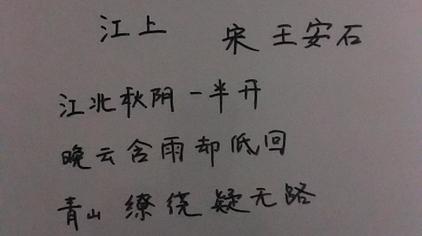 江上 宋 王安石
江北秋阴一半开
晚云含雨却低回
青山缭绕疑无路